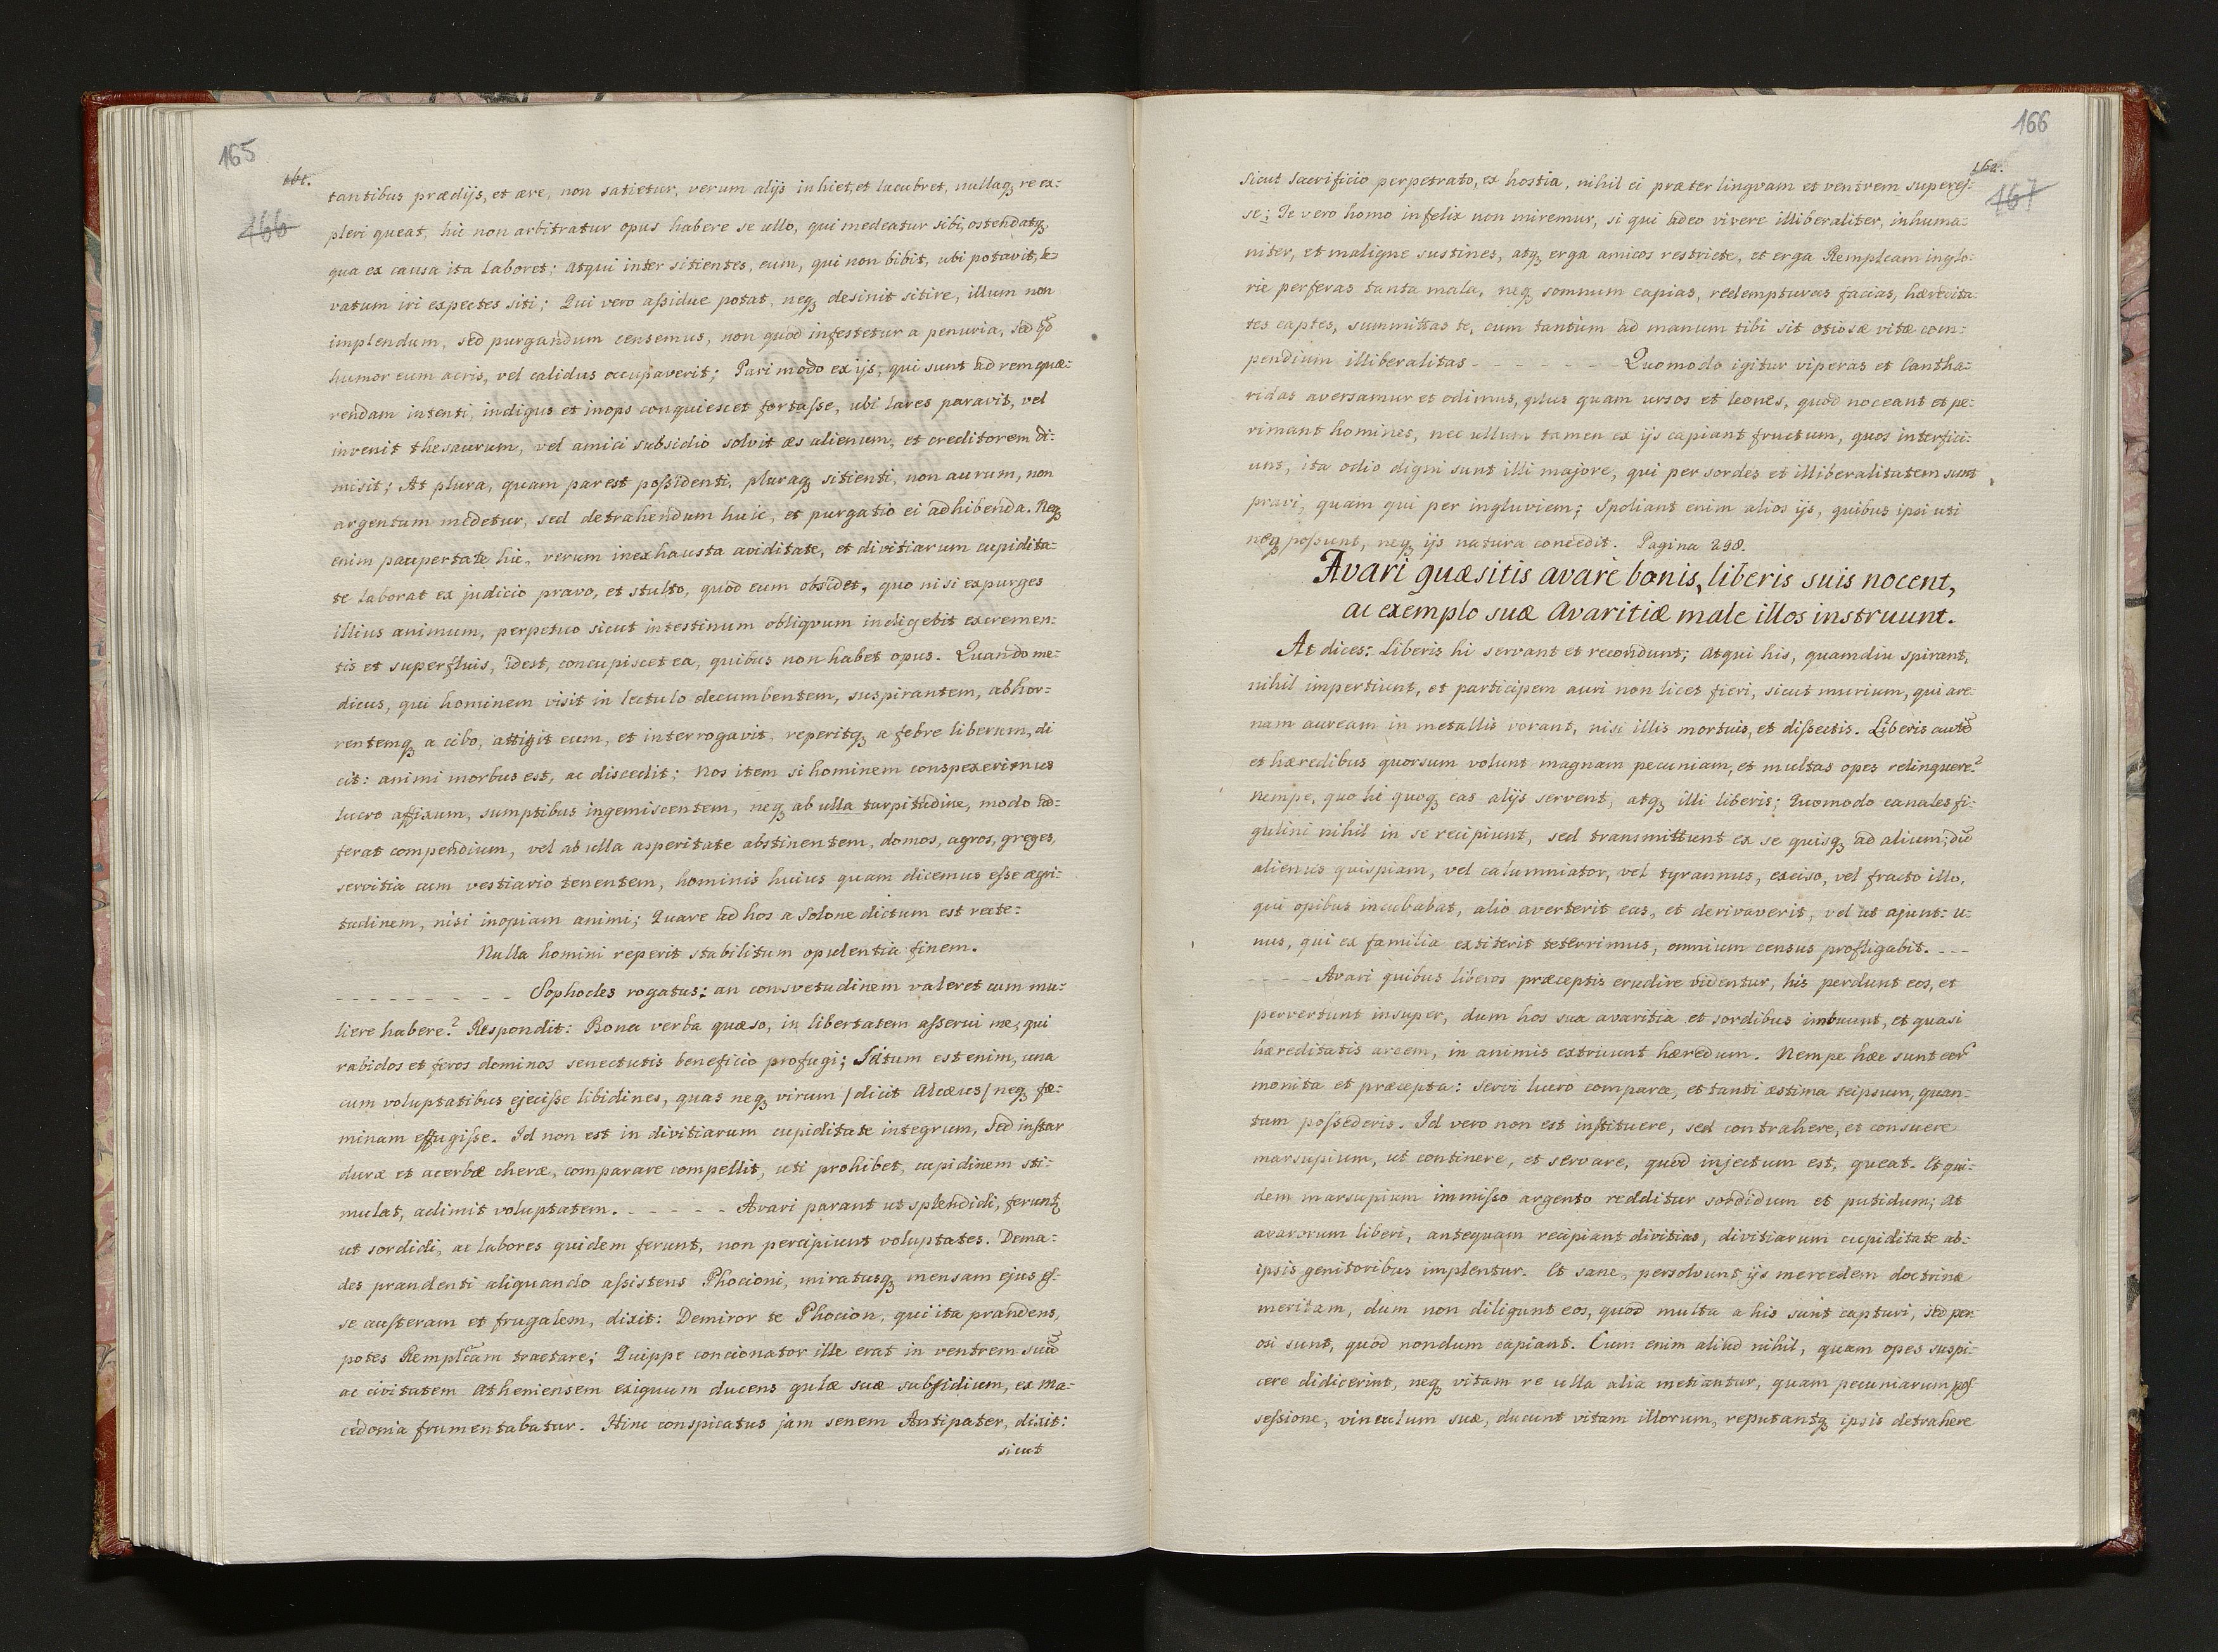 165
161.
166
tantibus prædijs, et ære, non satietur, verum alijs inhiet, et lucubret, nullaq₃ re ex:
pleri queat, hic non arbitratur opus habere se ullo, qui medeatur sibi, ostendatq₃
qua ex causa ita laboret; atqui inter sitientes, eum, qui non bibit, ubi potavit, le:
vatum iri expectes siti; Qui vero aſsidue potat, neq₃ desinit sitire, illum non
implendum, sed purgandum censemus, non quod infestetur a penuria, sed qđ
humor eum acris, vel calidus occupaverit; Pari modo ex ijs, qui sunt ad rem quæ:
rendam intenti, indigus et inops conquiescet fortaſse, ubi lares paravit, vel
invenit thesaurum, vel amici subsidio solvit æs alienum, et creditorem di:
misit; At plura, quam par est poſsidenti, pluraq₃ sitienti, non aurum, non
argentum medetur, sed detrahendum huic, et purgatio ei adhibenda. Neq₃
enim paupertate hic, verum inexhausta aviditate, et divitiarum cupidita:
te laborat ex judicio pravo, et stulto, quod eum obsidet, quo nisi expurges
illius animum, perpetuo sicut intestinum obliqvum indigebit excremen:
tis et superfluis, idest, concupiscet ea, quibus non habet opus. Quando me:
dicus, qui hominem visit in lectulo decumbentem, suspirantem, abhor:
rentemq₃ a cibo, attigit eum, et interrogavit, reperitq₃ a febre liberum, di
cit: animi morbus est, ac discedit; Nos item si hominem conspexerimus
lucro affixum, sumptibus ingemiscentem, neq₃ ab ulla turpitudine, modo ad:
ferat compendium, vel ab ulla asperitate abstinentem, domos, agros, greges,
servitia cum vestiario tenentem, hominis huius quam dicemus eſse ægri:
tudinem, nisi inopiam animi; Quare ad hos a Solone dictum est recte:
Nulla homini reperit stabilitum opulentia finem.
- - - - - - - - - - Sophocles rogatus: an consvetudinem valeret cum mu:
liere habere? Respondit: Bona verba quæso, in libertatem aſserui me, qui
rabidos et feros dominos senectutis beneficio profugi; Scitum est enim, una
cum voluptatibus ejeciſse libidines, quas neq₃ virum /dicit Alcæus/ neq₃ fæ:
minam effugiſse. Id non est in divitiarum cupiditate integrum, Sed instar
duræ et acerbæ heræ, comparare compellit, uti prohibet, cupidinem sti:
mulat, adimit voluptatem. - - - - - - Avari parant ut splendidi, ferunt₃
ut sordidi, ac labores quidem ferunt, non percipiunt voluptates. Dema:
des prandenti aliquando aſsistens Phocioni, miratusq₃ mensam ejus eſ:
se austeram et frugalem, dixit: Demiror te Phocion, qui ita prandens,
potes Remplcam tractare; Quippe concionator ille erat in ventrem suũ
ac civitatem Atheniensem exiguum ducens gulæ suæ subsidium, ex Ma:
cedonia frumentabatur. Hinc conspicatus jam senem Antipater, dixit:
sicut
166
162.
167
Sicut Sacrificio perpetrato, ex hostia, nihil ei præter lingvam et ventrem supereſ:
se; Te vero homo infelix non miremur, si qui adeo vivere illiberaliter, inhuma:
niter, et maligne sustines, atq₃ erga amicos restricte, et erga Remplcam inglo:
rie perferas tanta mala, neq₃ somnum capias, redempturas facias, hæredita:
tes captes, summittas te, cum tantum ad manum tibi sit otiosæ vitæ com:
pendium illiberalitas - - - - - - - Quomodo igitur viperas et Cantha:
ridas aversamur et odimus, plus quam ursos et leones, quod noceant et pe:
rimant homines, nec ullum tamen ex ijs capiant fructum, quos interfici:
unt, ita odio digni sunt illi majore, qui per sordes et illiberalitatem sunt
pravi, quam qui per ingluviem; Spoliant enim alios ijs, quibus ipsi uti
neq₃ poſsunt, neq₃ ijs natura concedit. Pagina 298.
Avari quæsitis avare bonis, liberis suis nocent,
ac exemplo suæ Avaritiæ male illos instruunt.
At dices: Liberis hi servant et recondunt; Atqui his, quamdiu spirant,
nihil impertiunt, et participem auri non licet fieri, sicut murium, qui are:
nam auream in metallis vorant, nisi illis mortuis, et diſsectis. Liberis autẽ
et hæredibus quorsum volunt magnam pecuniam, et multas opes relinquere?
Nempe, quo hi quoq₃ eas alijs servent, atq₃ illi liberis; Quomodo canales fi:
gulini nihil in se recipiunt, sed transmittunt ex se quisq₃ ad alium, dũ
alienus quispiam, vel calumniator, vel tyrannus, exciso, vel fracto illo,
qui opibus incubabat, alio averterit eas, et derivaverit, vel ut ajunt: u:
nus, qui ex familia extiterit teterrimus, omnium census profligabit. - - -
- - - - Avari quibus liberos præceptis erudire videntur, his perdunt eos, et
pervertunt insuper, dum hos sua avaritia et sordibus imbuunt, et quasi
hæreditatis arcem, in animis extruunt hæredum. Nempe hæc sunt eorũ
monita et præcepta: Servi lucro comparce, et tanti æstima teipsum, quan:
tum poſsederis. Id vero non est instituere, sed contrahere, et consuere
marsupium, ut continere, et servare, quod injectum est, queat. Et qui:
dem marsupium immiſso argento redditur sordidum et putidum; At
avarorum liberi, antequam recipiant divitias, divitiarum cupiditate ab:
ipsis genitoribus implentur. Et sane, persolvunt ijs mercedem doctrinæ
meritam, dum non diligunt eos, quod multa a his sunt capturi, Sed per:
osi sunt, quod nondum capiant. Cum enim aliud nihil, quam opes suspi:
cere didicerint, neq₃ vitam re ulla alia metiantur, quam pecuniarum poſ:
seſsione, vinculum suæ, ducunt vitam illorum, reputantq₃ ipsis detrahere